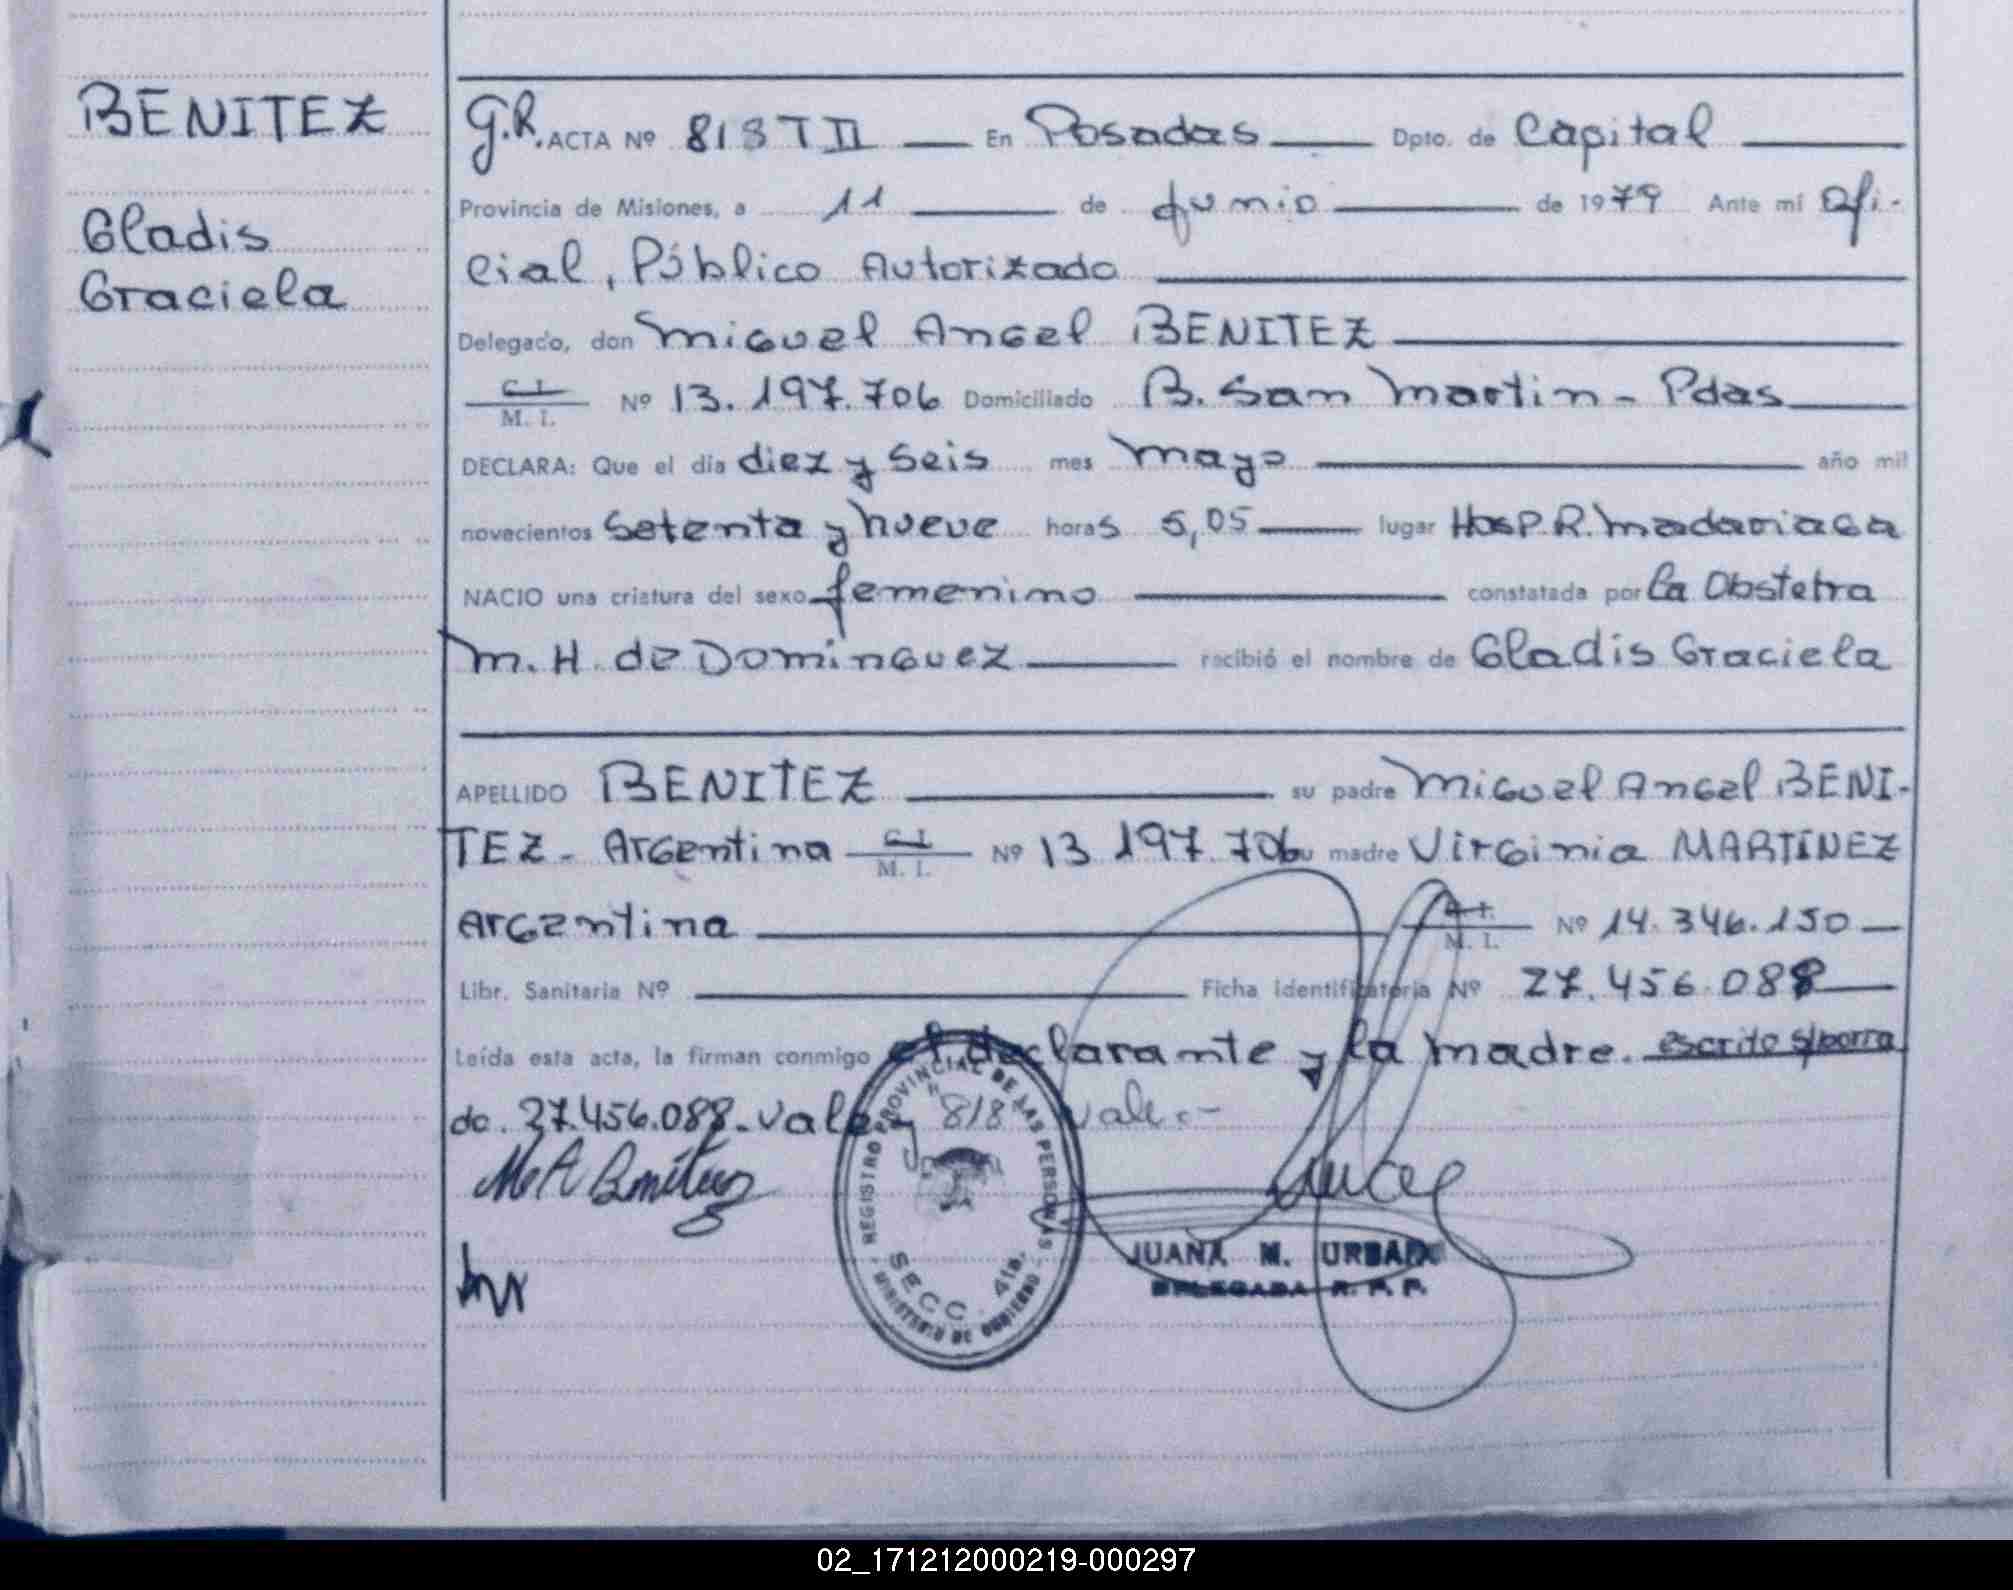 BENITEZ
Gladis
Graciela
G.R. ACTA Nº 818 T II En Posadas Dpto. de Capital
Provincia de Misiones, a 11 de junio de 1979 Ante mí Ofi-
cial, Público Autorizado
Delegado, don Miguel Angel BENITEZ
C. I.
M. I. Nº 13.197.706 Domiciliado B. San Martin - Pdas
DECLARA: Que el día diez y seis mes mayo año mil
novecientos setenta y nueve horas 5,05 lugar Hosp. R. Madariaga
NACIO una criatura del sexo femenino constatada por la Obstetra
M. H. de Dominguez recibió el nombre de Gladis Graciela
APELLIDO BENITEZ su padre Miguel Angel BENI-
TEZ - Argentina C. I. Nº 13 197.706 su madre Virginia MARTÍNEZ
M. I.
Argentina C. I. Nº 14.346.150
M. I.
Libr. Sanitaria Nº Ficha Identificatoria Nº 27.456.088
Leída esta acta, la firman conmigo el declarante y la madre. escrito s/borra
do. 27.456.088. Vale y "818" Vale.-
M A Benitez
REGISTRO PROVINCIAL DE LAS PERSONAS
SECC. 4ta.
MINISTERIO DE GOBIERNO
JUANA M. URBAN
DELEGADA R. P. P.
02_171212000219-000297